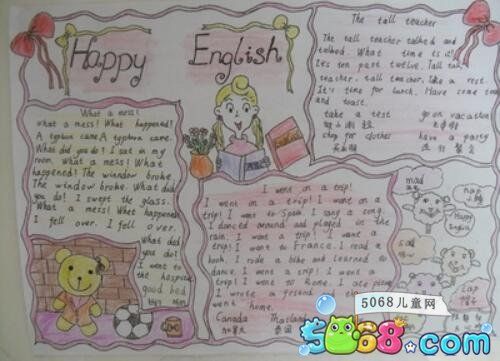 Happy English
The tall teacher
The tall teacher talked and
talked. What time is it?
It's ten past twelve. Tall
teacher, tall teacher, take a rest.
It's time for lunch. Have some tea
and toast.
take a test go on vacation
shop for clothes have a party
What a mess!
What a mess! What happened!
A typhoon came A typhoon came.
What did you do? I sat in my
room. What a mess! What
happened! The window broke.
The window broke. What did
you do! I swept the glass.
What a mess! What happened
I fell over. I fell over.
What did
you do?
I went to
the hospital
good bed
I went on a trip!
I went on a trip! I went on a
trip! I went to Spain. I sang a song.
I danced around and played in the
rain. I went a trip! I went a
trip! I went to France. I read a
book. I rode a bike and learned to
dance. I went a trip! I went a
trip! I went to Rome. I ate pizza
I wrote a friend
Canada Thailand
加拿大 泰国
mad
sad
Happy
English
5068儿童网
5068.com